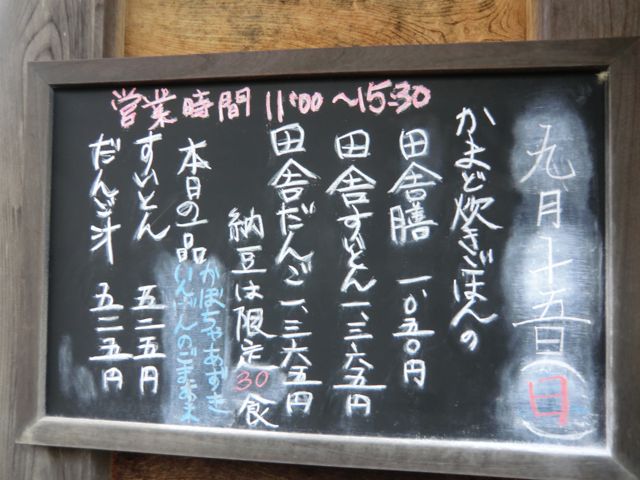 九月十五日(日)
かまど炊きごはんの
田舎膳 一、〇五〇円
田舎すいとん 一、三六五円
田舎だんご 一、三六五円
納豆は限定30食
本日の一品
かぼちゃあずき
いんげんのごまあえ
すいとん 五二五円
だんご汁 五二五円
営業時間 11:00〜15:30